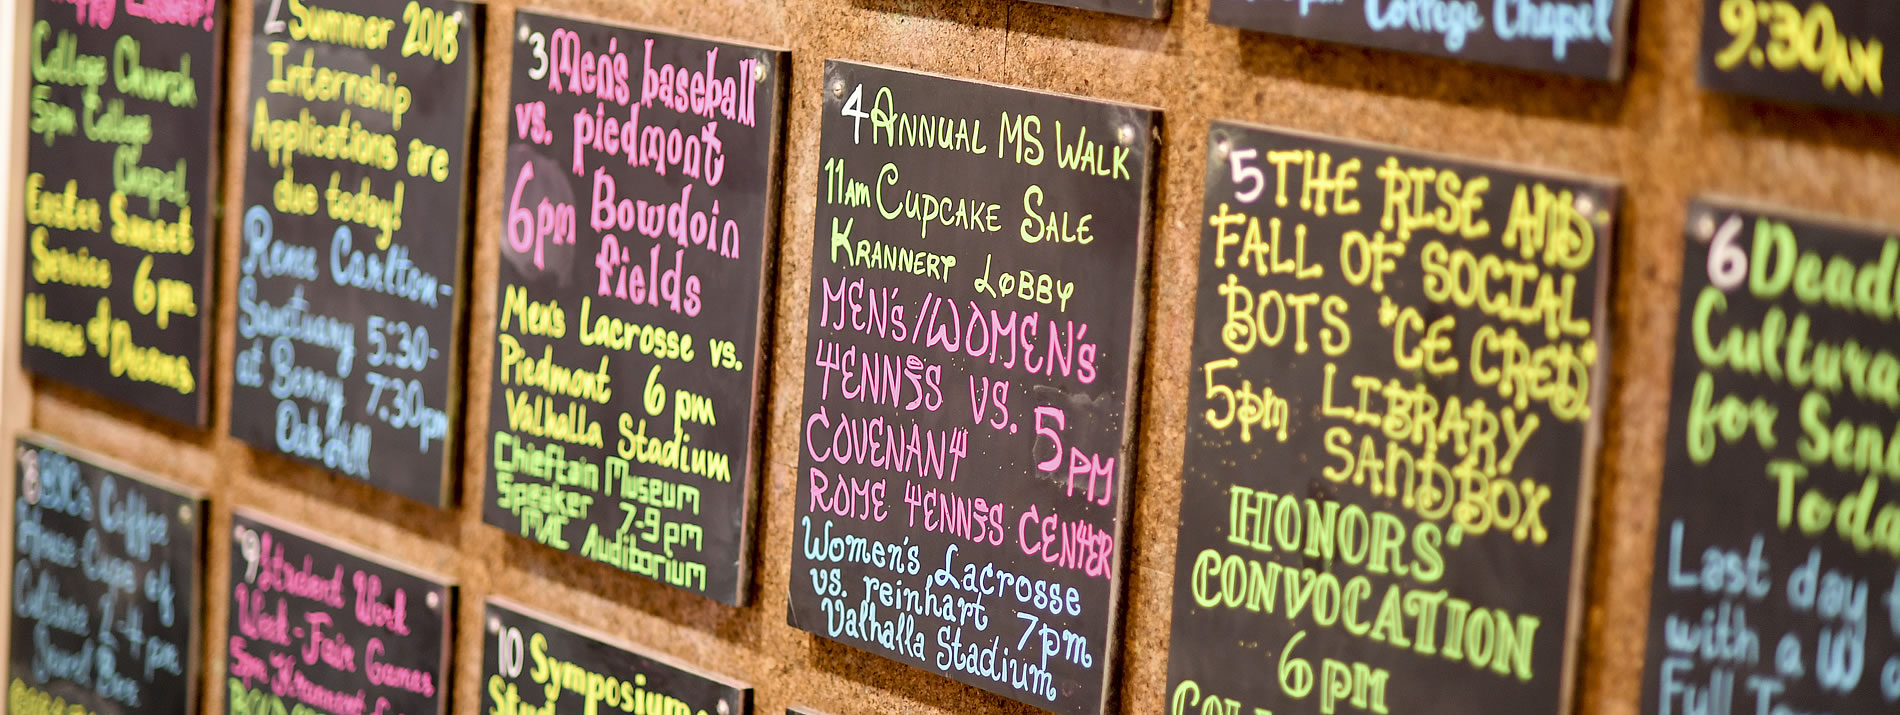 Happy Easter!
College Church
5pm College
Chapel
Easter Sunset
Service 6pm
House of Dreams
2 Summer 2018
Internship
Applications are
due today!
Renee Carlton-
Sanctuary 5:30-
at Berry 7:30pm
Oak Hill
3 Men's baseball
vs. piedmont
6pm Bowdoin
fields
Men's Lacrosse vs.
Piedmont 6 pm
Valhalla Stadium
Chieftain Museum
Speaker 7-9 pm
MAC Auditorium
4 Annual MS Walk
11am Cupcake Sale
Krannert Lobby
MEN'S/WOMEN'S
TENNIS VS. 5 PM
COVENANT
ROME TENNIS CENTER
Women's Lacrosse
vs. reinhart 7pm
Valhalla Stadium
College Chapel
5 THE RISE AND
FALL OF SOCIAL
BOTS "CE CRED"
5pm LIBRARY
SANDBOX
HONORS'
CONVOCATION
6 pm
9:30AM
6 Dead
Cultura
for Sen
Toda
Last day
with a W
Full
Coffee
House-Cups of
Culture 2-4 pm
Jewel Box
9 Student Work
Week-Fair Games
5pm Krannert
10 Symposium
Stud